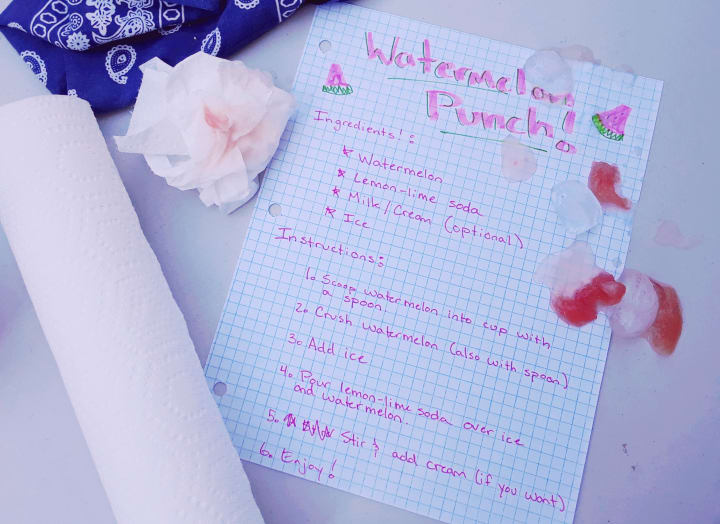 Watermelon
Punch!
Ingredients!:
* Watermelon
* Lemon-lime soda
* Milk/Cream (optional)
* Ice
Instructions:
1. Scoop watermelon into cup with
a spoon.
2. Crush watermelon (also with spoon)
3. Add ice
4. Pour lemon-lime soda over ice
and watermelon.
5. Stir & add cream (if you want)
6. Enjoy!